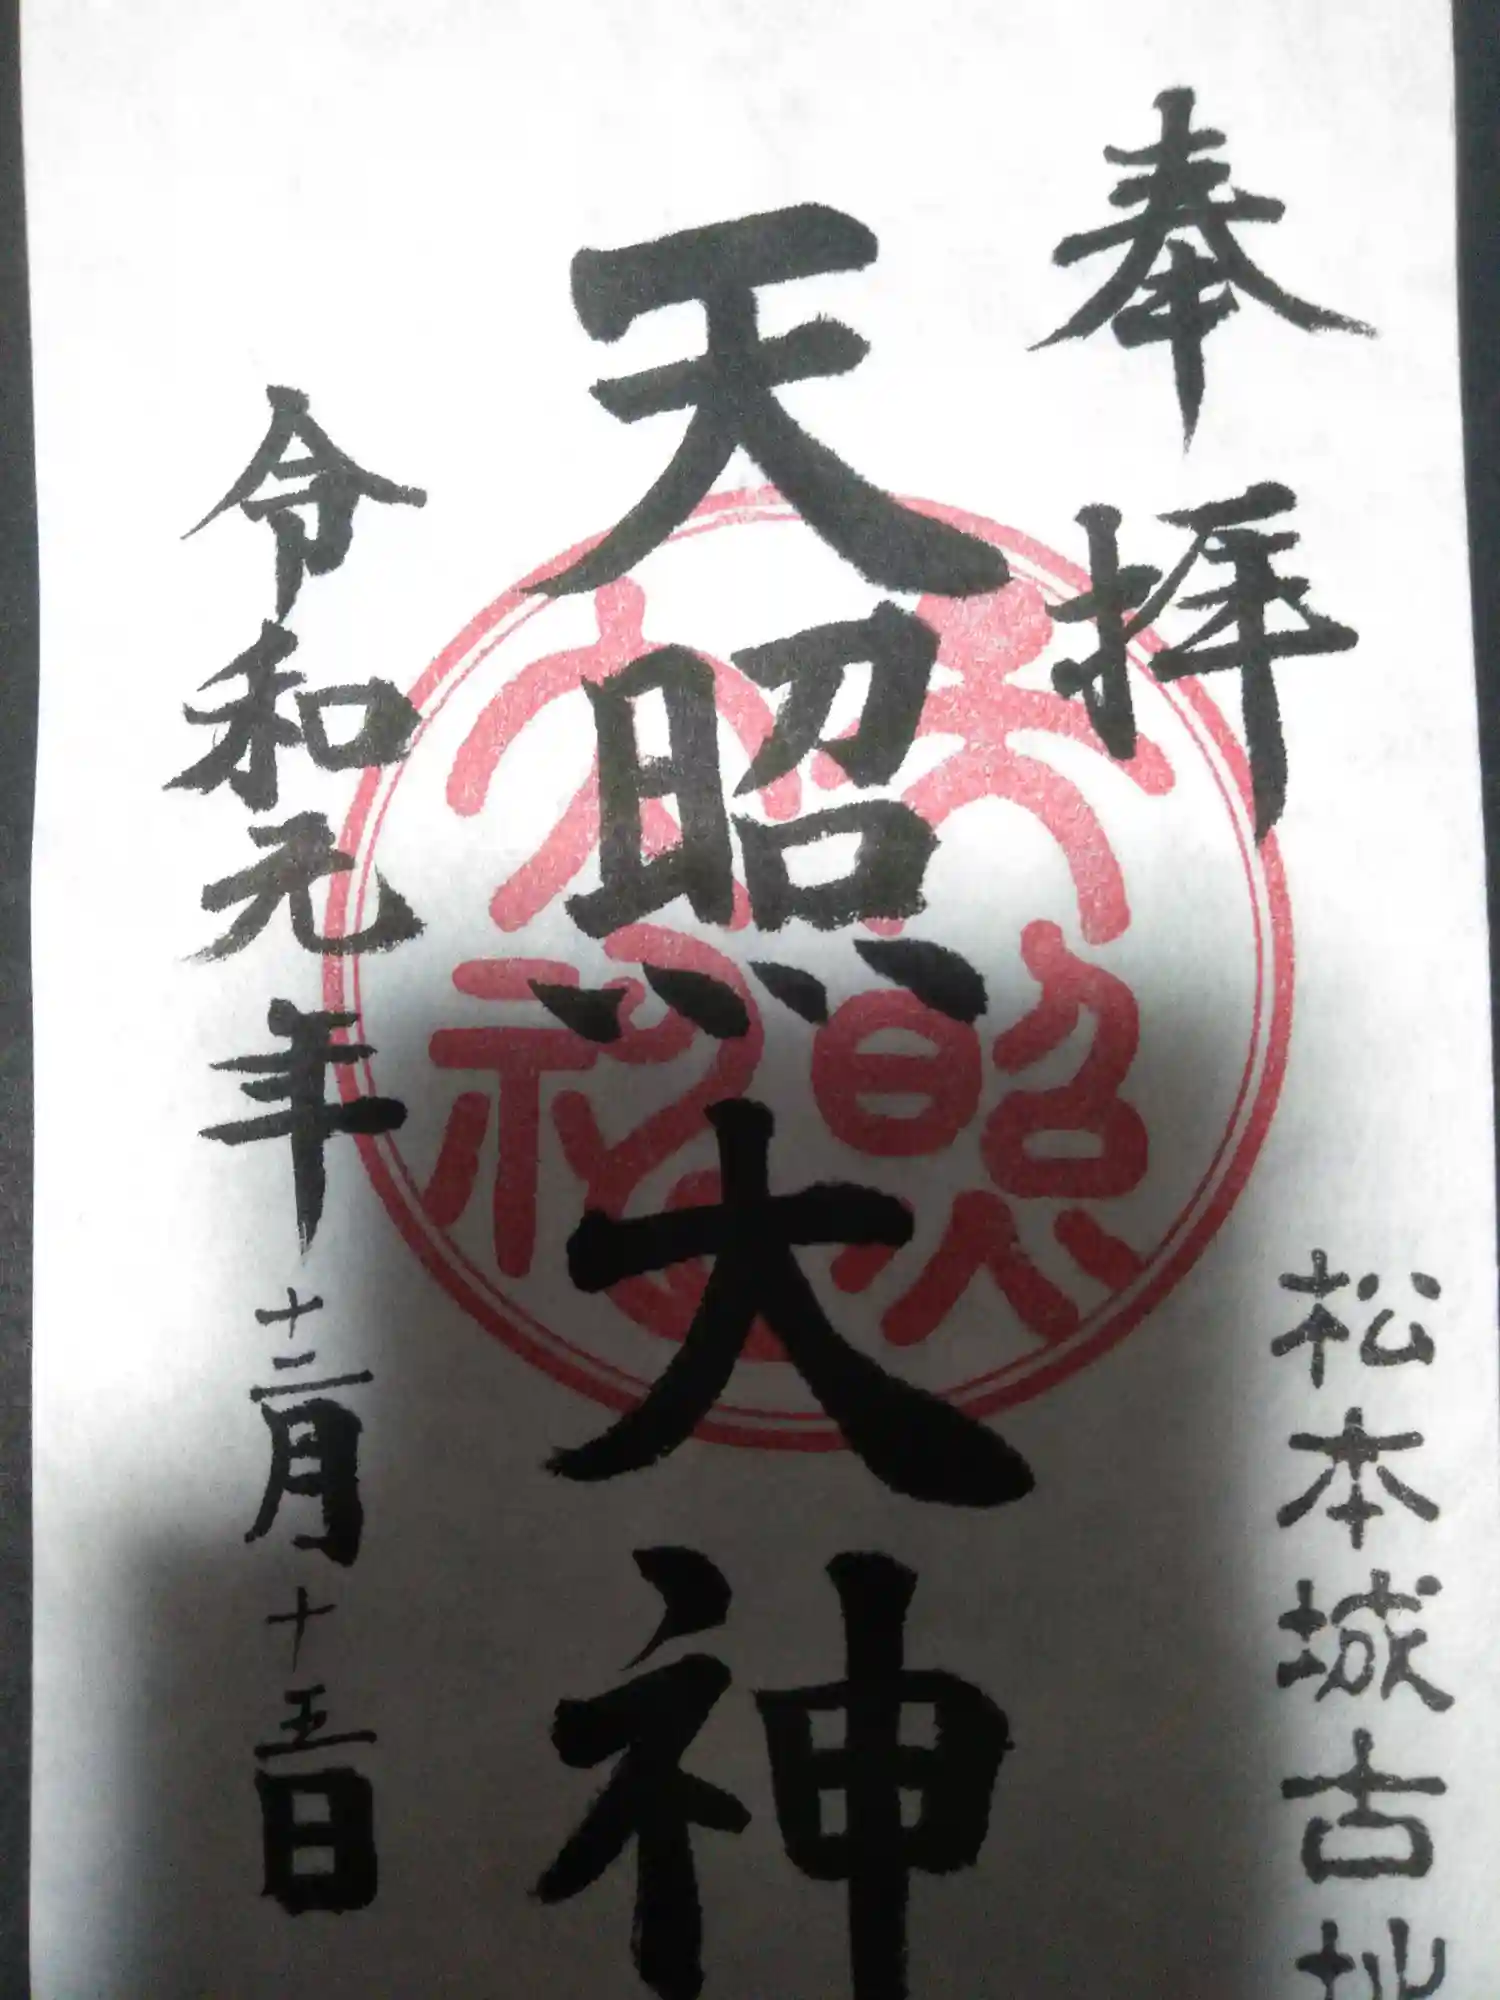 奉拝
松本城古地
天照大神
天照大神
令和元年十二月十五日